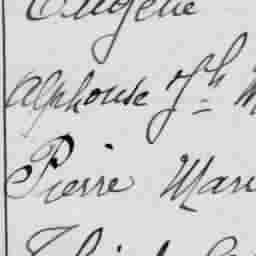 Eugène
Alphonse Jh
Pierre Mari